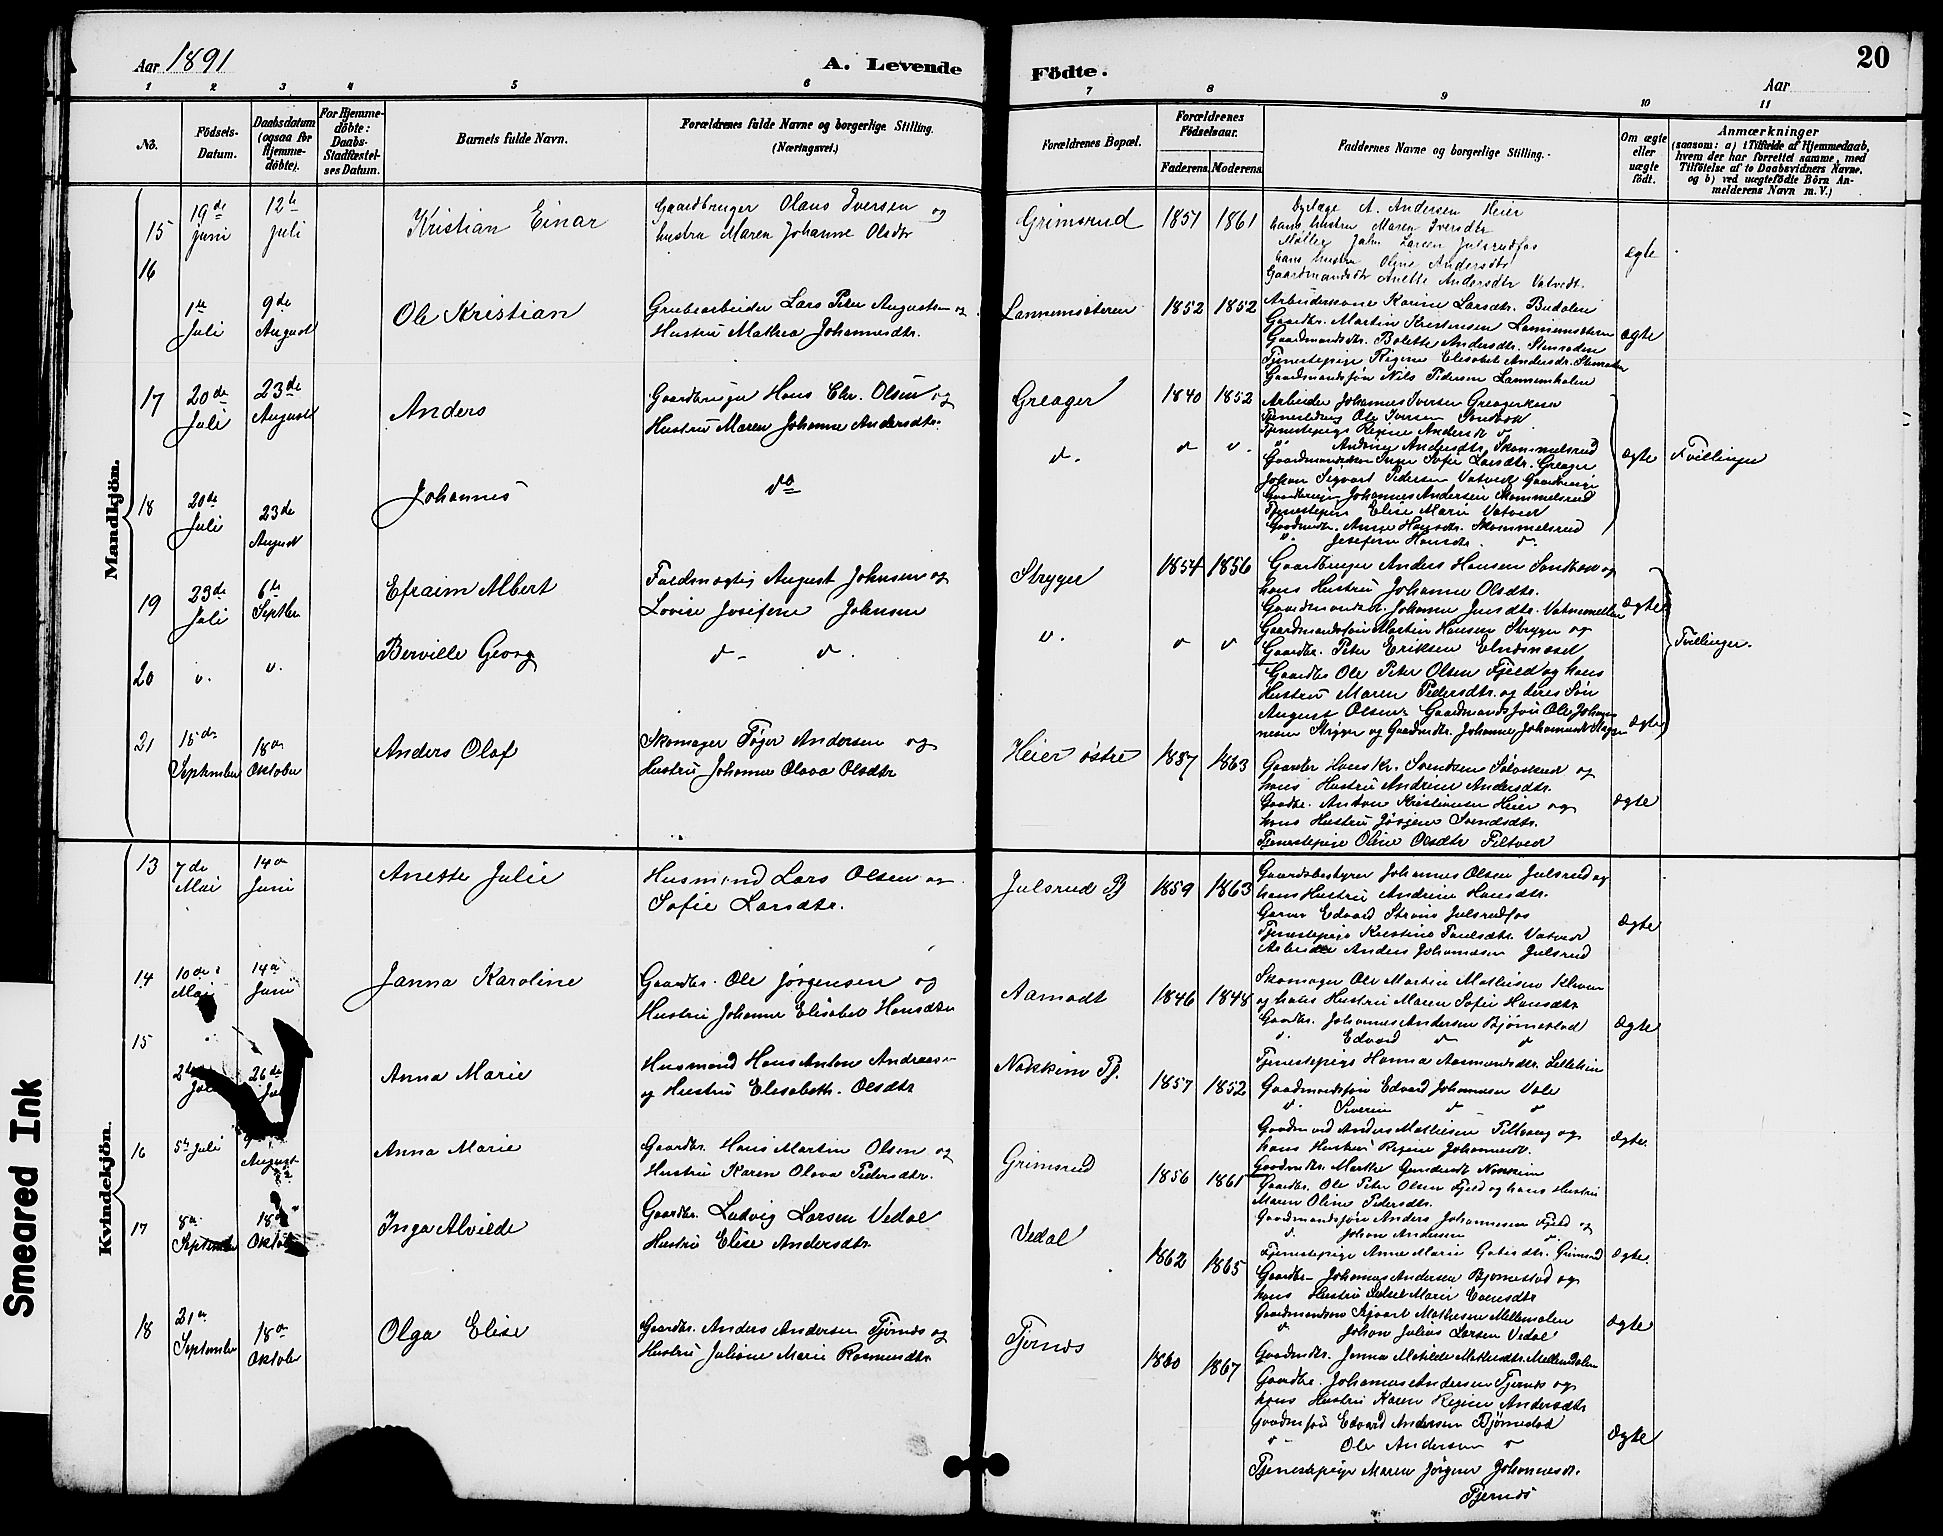 Aar 1891
A. Levende Födte.
20
Aar
1 2 3 4 5 6 7 8 9 10 11
No.
Födsels-Datum.
Daabsdatum (ogsaa for Hjemme-döbte).
For Hjemme-döbte: Daabs-Stadfæstel-ses Datum.
Barnets fulde Navn.
Forældrenes fulde Navne og borgerlige Stilling. (Næringsvei.)
Forældrenes Bopæl.
Forældrenes Födselsaar.
Faderens. Moderens.
Faddernes Navne og borgerlige Stilling.
Om ægte eller uægte födt.
Anmærkninger
(saasom: a) i Tilfælde af Hjemmedaab, hvem der har forrettet samme, med Tilföielse af to Daabsvidners Navne. og b) ved uægtefödte Börn An-melderens Navn m. V.)
Mandkjön.
15 19de Juni 12te Juli Kristian Einar
Gaardbruger Olaus Iversen og
hustru Maren Johanne Olsdtr
Grimsrud 1851 1861
A. Andersen Heier
hans hustru Maren Iversdtr
Møller Joh. Larsen Julsrudfos
hans hustru Oline Andersdtr
Gaardmandsdtr Anette Andersdtr Vatvedt.
ægte
16 1ste Juli 9de August Ole Kristian
Grubearbeider Lars Peter Augustsen og
Hustru Mathea Johannesdtr.
Lannemsæteren 1852 1852
Arbeiderkone Karine Larsdtr. Budalen
Gaardbr. Martin Kristensen Lannemsæteren
Gaardmandsdtr. Bolette Andersdtr. Stenroden
Tjenestepige Regine Elisabet Andersdtr. Stenroden
Gaardmandssøn Nils Pedersen Lannemholen
ægte
17 20de Juli 23de August Anders
Gaardbruger Hans Chr. Olsen og
Hustru Maren Johanne Andersdtr.
Greager 1840 1852
Arbeider Johannes Iversen Greagerkasa
Tjenestedreng Ole Iversen Sandbæk
Tjenestepige Regine Andersdtr
Andrine Andersdtr. Skammelsrud
Inger Sofie Larsdtr. Greager
Johan Sigvart Pedersen Vatvedt
Gaardbruger Johannes Andersen Skammelsrud
Tjenestepige Elise Marie Vatvedt
Gaardmdtr. Anne Hansdtr. Skammelsrud
Josefine Hansdtr.
ægte Tvillinger
18 20de Juli 23de August Johannes
do
19 23de Juli 6te Septbr Efraim Albert
Fuldmægtig August Johnsen og
Lovise Josefine Johnsen
Stryger 1854 1856
Gaardbruger Anders Hansen Sandbæk og
hans Hustru Johanne Olsdtr.
Gaardmandsdtr. Johanne Jensdtr. Vatnemellem
Gaardmandssøn Martin Hansen Stryger og
Gaardbr. Peter Eriksen
ægte
20 Berville Georg
Gaardbr Ole Peter Olsen Fjeld og hans
Hustru Maren Pedersdtr. og deres Søn
August Olsen. Gaardmandssøn Ole Johan-
nesen Stryger og Gaardmdtr. Johanne Johannesdtr Stryger
ægte Tvillinger.
21 15de September 18de Oktober Anders Olaf
Skomager Tøger Andersen og
Hustru Johanne Olava Olsdtr
Heier østre 1857 1863
Gaardbr Hans Kr. Svendsen Sølvskud og
hans Hustru Andrine Andersdtr.
Gaardbr. Anton Kristiansen Heier og
hans Hustru Jørgine Svendsdtr.
Tjenestepige Oline Olsdtr Filtvedt
ægte
Kvindekjön.
13 7de Mai 14de Juni Anette Julie
Husmand Lars Olsen og
Sofie Larsdtr.
Julsrud Pl 1859 1863
Gaardsbestyrer Johannes Olsen Julsrud og
hans Hustru Andrine Hansdtr.
Garver Edvard Strøm Julsrudfos
Tjenestepige Kristine Paulsdtr. Vatvedt
Arbeider Anders Johannesen Julsrud
ægte
14 10de Mai 14de Juni Janna Karoline
Gaardbr. Ole Jørgensen og
Hustru Johanne Elisabet Hansdtr
Aamodt 1846 1848
Skomager Ole Martin Mathisen
og hans Hustru Maren Sofie Hansdtr
Gaardbr. Johannes Andersen Bjørnestad
Edvard
Tjenestepige Hanna Aasmundsdtr. Lillelien
ægte
15 Juli 26de Juli Anna Marie
Husmand Hans Anton Andreasen
og Hustru Elisabeth. Olsdtr
Nokkim Pl. 1857 1852
Gaardmandssøn Edvard Johannesen Vale
Severin
Gaardmand Anders Mathisen og
hans Hustru Regine Johannesdtr.
Gaardmdtr. Marthe Nokkim
ægte
16 5te Juli 9de August Anna Marie
Gaardbr. Hans Martin Olsen og
Hustru Karen Olava Pedersdtr.
Grimsrud 1856 1861
Gaardbr. Ole Peter Olsen Fjeld og hans Hustru
Maren Oline Pedersdtr.
Gaardmandssøn Anders Johannesen Fjeld og
Johan Andersen
Tjenestepige Anne Marie Grimsrud
ægte
17 8de September 18de Oktober Inga Alvilde
Gaardbr. Ludvig Larsen Vedal
Hustru Elise Andersdtr.
Vedal 1862 1865
Gaardbr. Johannes Andersen Bjørnestad og
hans Hustru Marie Evensdtr
Gaardmandssøn Sigvart Mathisen Mellemdalen
Johan Julius Larsen Vedal
Gaardmdtr. Janna Matilde Mathisdtr. Mellemdalen
ægte
18 21de September 18de Oktober Olga Elise
Gaardbr. Anders Andersen Tjernæs og
Hustru Juliane Marie Rasmusdtr.
Tjernæs 1860 1867
Gaardbr. Johannes Andersen Tjernæs og
hans Hustru Karen Regine Andersdtr
Gaardmsøn Edvard Andersen Bjørnestad
Ole Andersen
Tjenestepige Maren Jørgine Johannesdtr.
Tjernæs
ægte
Smeared Ink